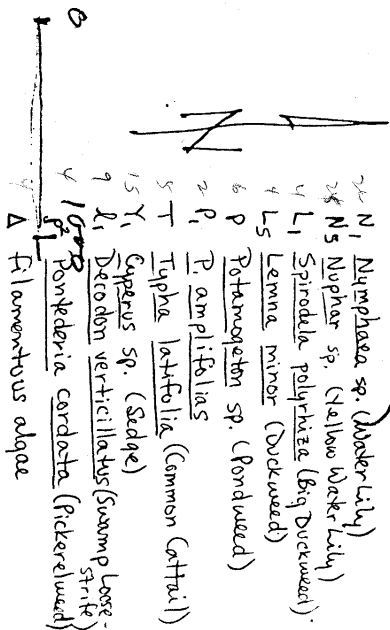 N₁ Nymphaea sp. (Water Lily)
N₅ Nuphar sp. (Yellow Water Lily)
4 L₁ Spirodela polyrhiza (Big Duckweed).
4 L₅ Lemna minor (Duckweed)
6 P Potamogeton sp. (Pondweed)
2 P₁ P. amplifolias
5 T Typha latifolia (Common Cattail)
15 Y₁ Cyperus sp. (Sedge)
9 l₁ Decodon verticillatus (Swamp Loose-
strife)
4 P² Pontederia cordata (Pickerelweed)
Δ filamentous algae
N
0